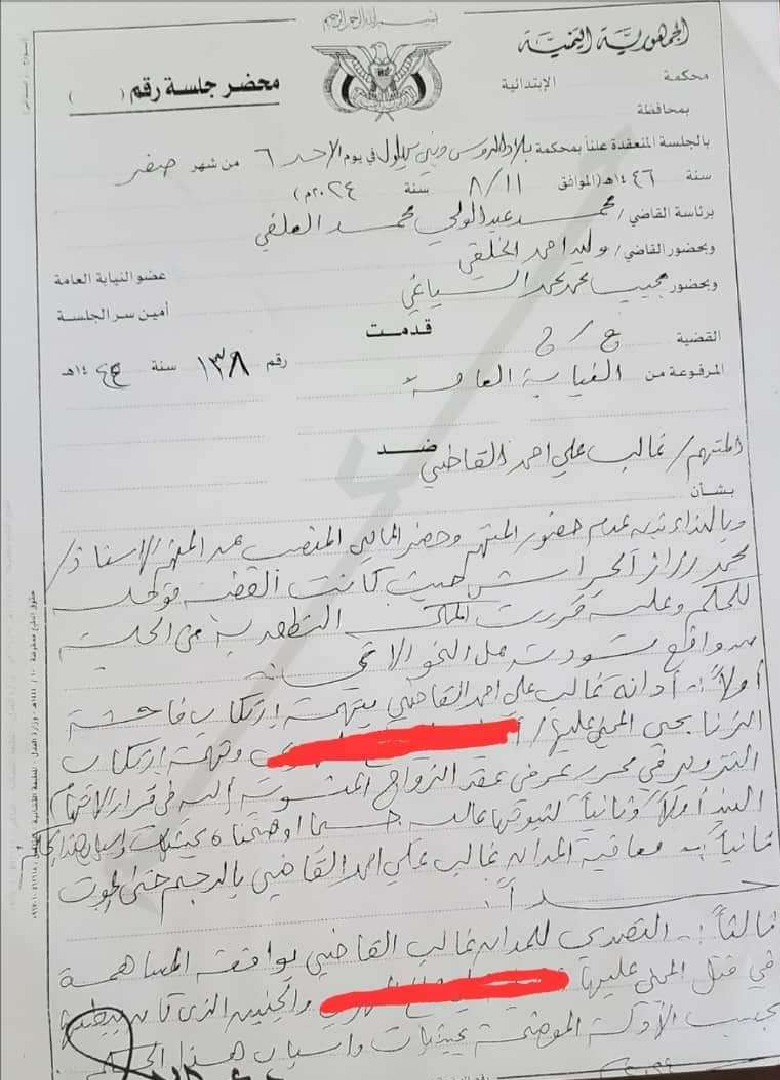 بسم الله الرحمن الرحيم
الجمهورية اليمنية
محكمة الإبتدائية
محضر جلسة رقم ( )
بمحافظة
بالجلسة المنعقدة علناً بمحكمة بلاد الروس وبني بهلول في يوم الاحد ٦ من شهر صفر
سنة ١٤٤٦هـ (الموافق ٨/١١ سنة ٢٠٢٤م)
برئاسة القاضي / محمد عبدالولي محمد العلفي
وبحضور القاضي / وليد احمد الخلقي عضو النيابة العامة
وبحضور مجيب محمد محمد السياغي أمين سر الجلسة
قدمت
القضية ج/ج رقم ١٣٨ سنة ١٤٤٤هـ
المرفوعة من النيابة العامة
ضد
المتهم/ غالب علي احمد القاضي
بشأن
وبالنداء تبين عدم حضور المتهم وحضر المحامي المنصب عن المتهم الاستاذ/
محمد الحراسي حيث كانت القضية مؤجلة
للحكم وعليه قررت المحكمة النطق به من الجلسة
من واقع مسودته على النحو الاتي
أولاً:- أدانة غالب علي احمد القاضي بتهمة إرتكاب فاحشة
الزنا بحق المجني عليها/ وتهمة إرتكاب
التزوير في محرر عرفي عقد الزواج المنسوبة إليه في قرار الاتهام
البند أولاً وثانياً لثبوتها عليه حسبما اوضحناه بحيثيات واسباب هذا الحكم
ثانياً:- معاقبة المدان غالب علي احمد القاضي بالرجم حتى الموت
حداً.
ثالثاً:- التصدي للمدان غالب القاضي بواقعة المساهمة
في قتل المجني عليها والجنين الذي كان ببطنها
بحسب الأدلة الموضحة بحيثيات واسباب هذا الحكم